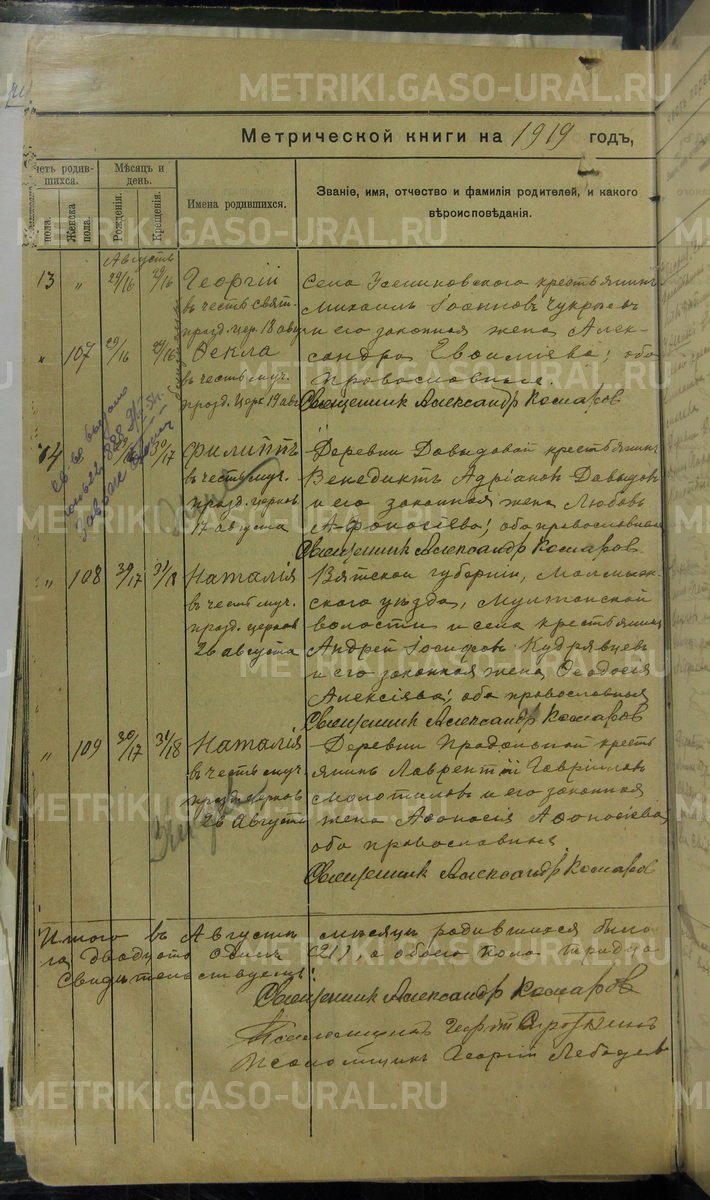 METRIKI.GASO-URAL.RU
Метрической книги на 1919 годъ,
четъ родив-
шихся.
Мѣсяцъ и
день.
Имена родившихся.
Званіе, имя, отчество и фамилія родителей, и какого
вѣроисповѣданія.
пола.
Женска
пола.
Рожденія.
Крещенія.
Августъ
13 " 29/16 29/16 Георгій Села Усениковского крестьянинъ
въ честь свят. Михаилъ Іоанновъ
празд. цер. 18 авгу и его законная жена Алек-
" 107 29/16 29/16 Фекла сандра Евфиміева; оба
въ честь муч. православные.
празд. церк 19 авг Священникъ Александръ Комаровъ
14 30/17 Филиппъ Деревни Давыдовой крестьянинъ
въ честь муч. Венедиктъ Адріановъ Давыдовъ
празд. церков и его законная жена Любовь
17 августа Афонасіева; оба православная
Священникъ Александръ Комаровъ
" 108 30/17 31/18 Наталія Вятской губерніи, Малмыж-
въ честь муч. ского уѣзда, Мултанской
празд. церков волости и села крестьянинъ
26 августа Андрей Іосифовъ Кудрявцевъ
и его законная жена Феодосія
Алексіева; оба православная
Священникъ Александръ Комаровъ
" 109 30/17 31/18 Наталія Деревни кресть
въ честь муч. янинъ Лаврентій Гавріиловъ
празд церков Молотиловъ и его законная
26 августа жена Афонасія Афонасіева,
оба православныя
Священникъ Александръ Комаровъ
Итого въ Августѣ мѣсяцѣ родившихся было
двадцать одинъ (21), а обоего пола тридца
Свидѣтельствуемъ:
Священникъ Александръ Комаровъ
Георгій
Псаломщикъ Георгій Лебедевъ